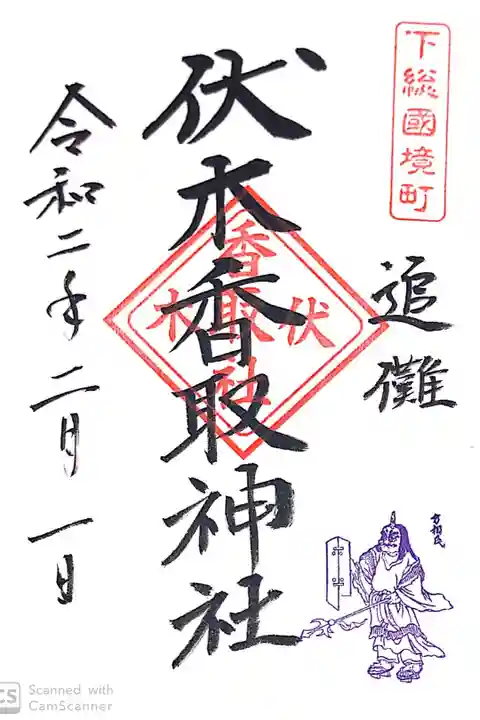 下総國境町
追儺
方相氏
伏木香取神社
伏木
香取社
令和二年二月一日
CS Scanned with
CamScanner